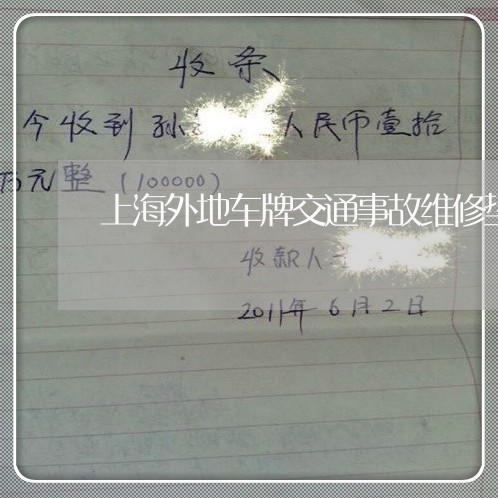 收条
今收到孙 人民币壹拾
万元整(100000)
上海外地车牌交通事故维修
收款人
2011年6月2日